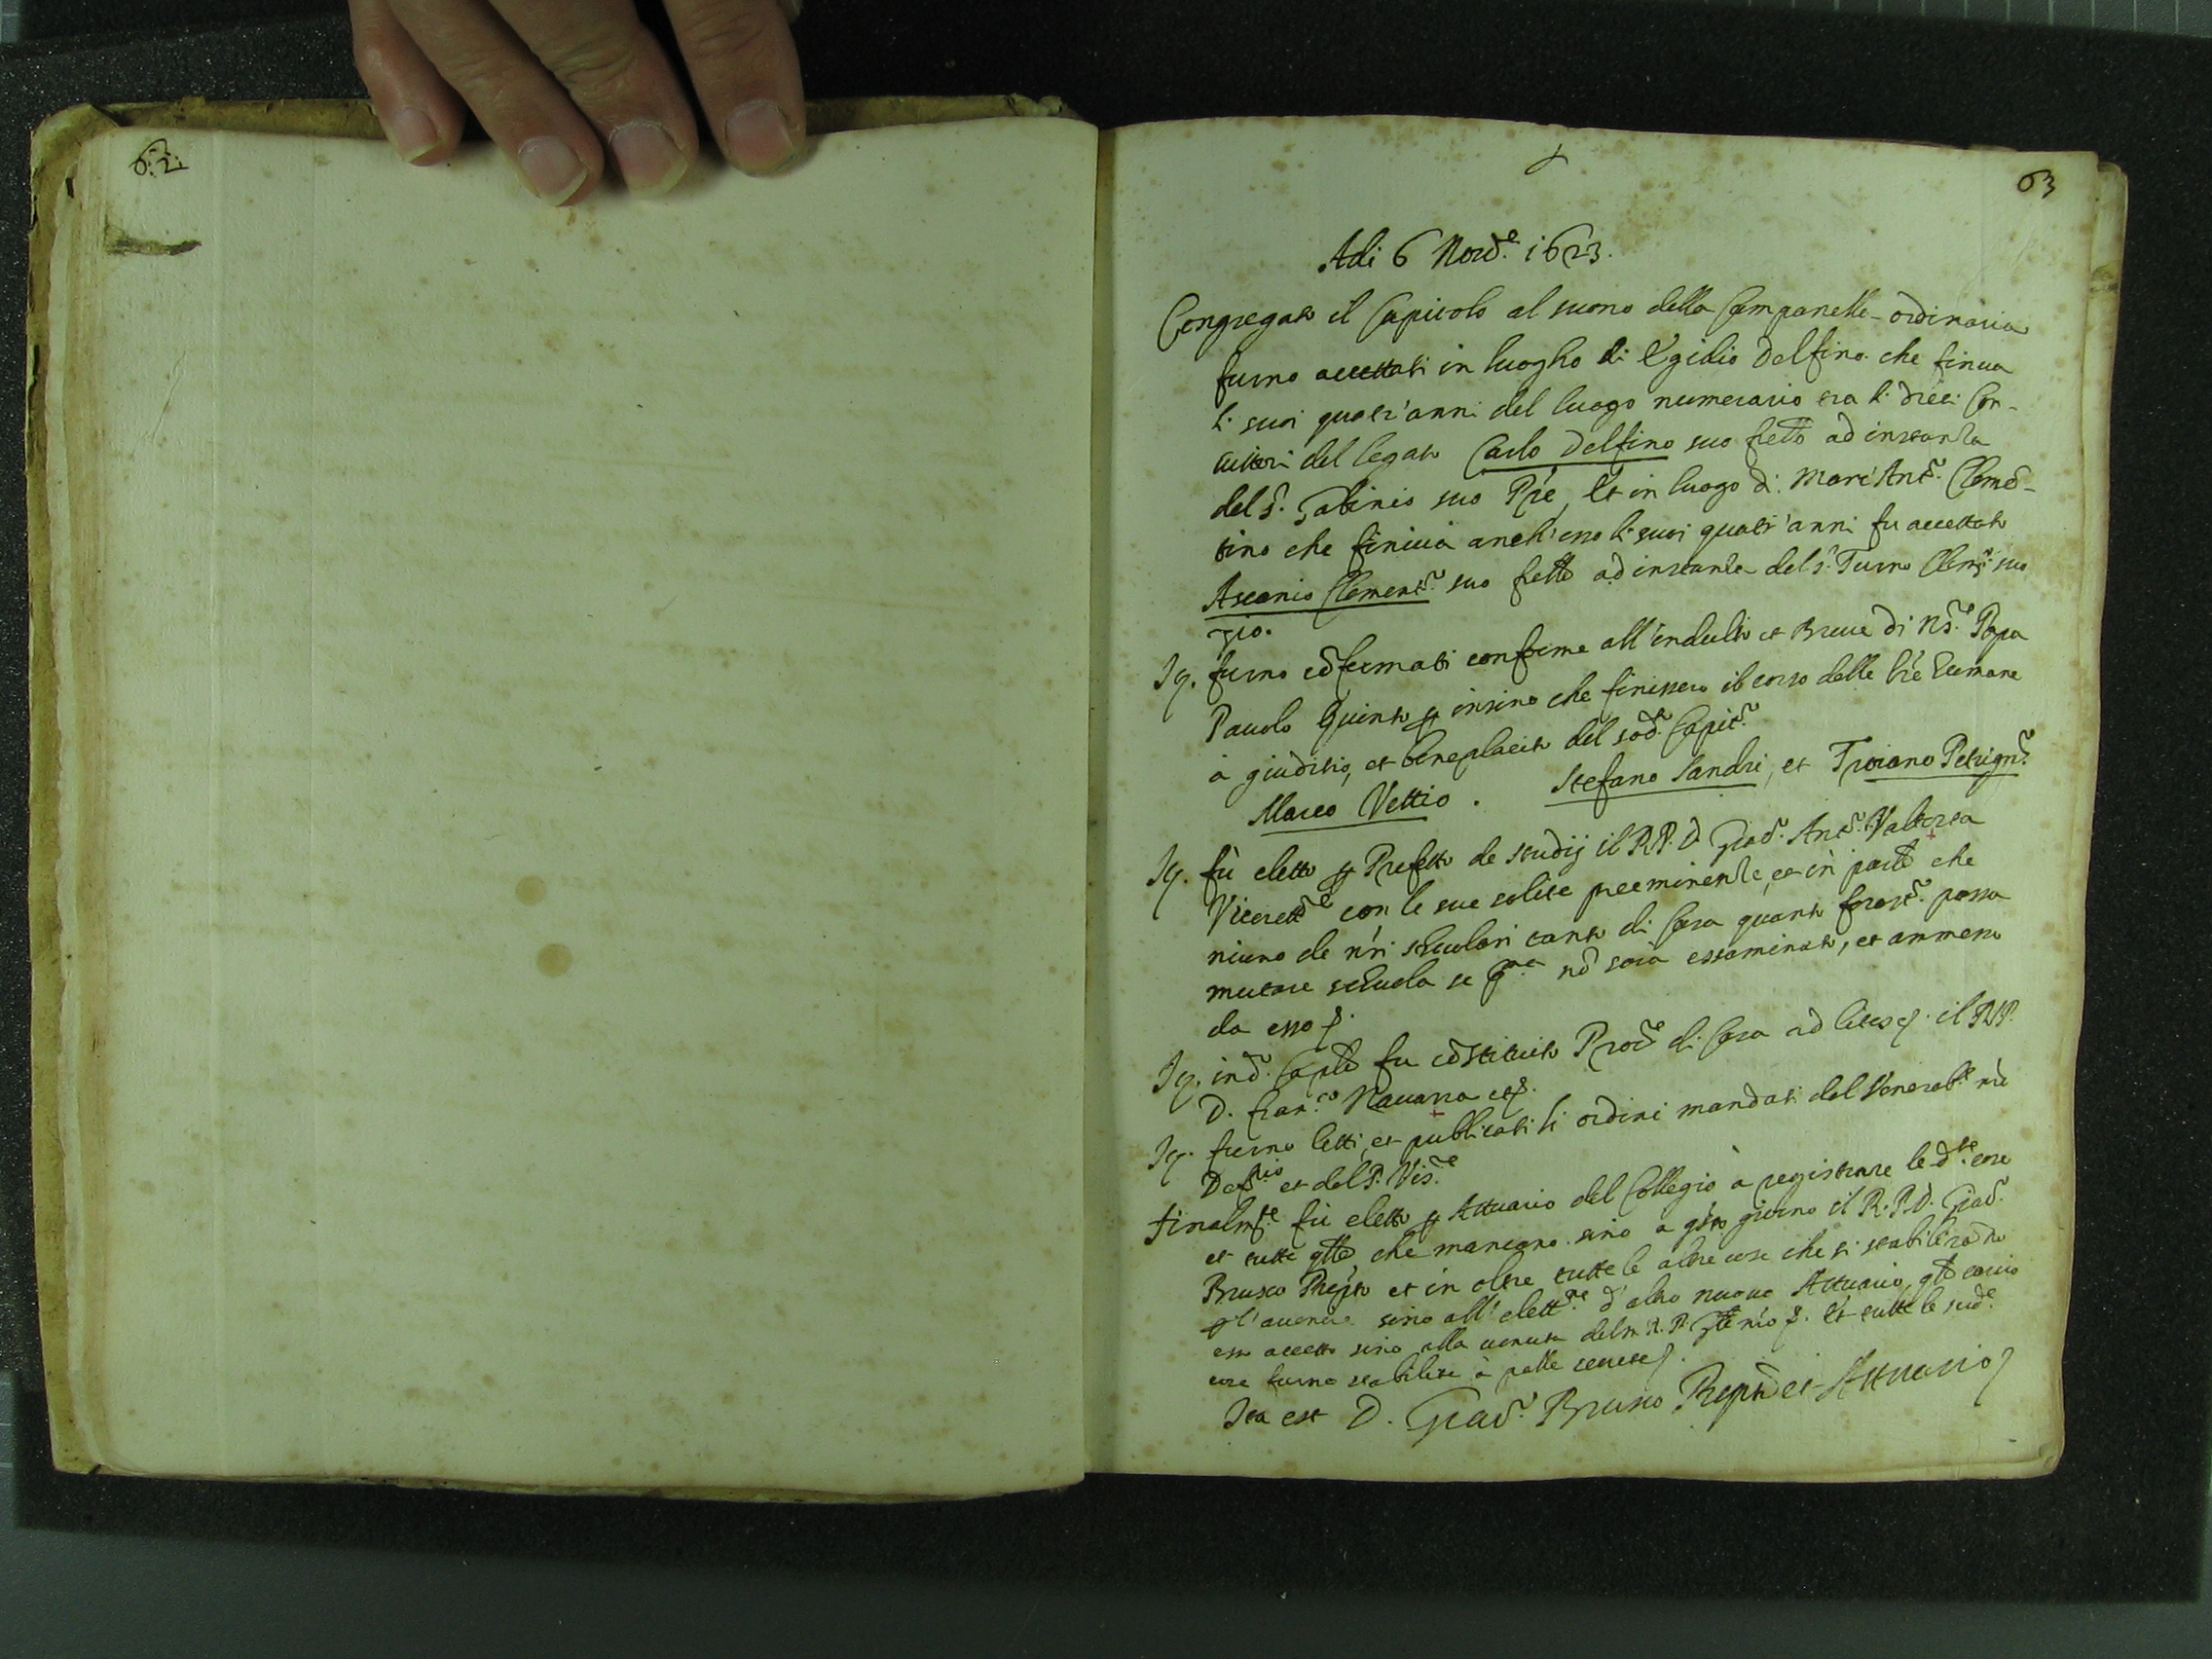 62.
63
Adi 6 Novẽ. 1623.
Congregato il Capitolo al suono della Campanella ordinaria
furno accettati in luogho di Egidio Delfino che finiva
li suoi quatr'anni del luogo numerario tra li dieci Con-
vittori del legato Carlo Delfino suo frẽllo ad instanza
del S. Gabinio suo Pr̃e, Et in luogo di Marc'Antõ. Clemẽ-
tino che finiva anch'esso li suoi quatr'anni fu accettato
Ascanio Clementõ. suo frẽllo ad instanza del S. Turno Clemẽ. suo
zio.
It. furno cõfermati conforme all'indulto et Breve di N.S. Papa
Pauolo Quinto ꝑ insino che finissero il corso delle lr̃e humane
à giuditio, et beneplacito del sod. Capitõ.
Marco Vettio. Stefano Sandri, et Troiano Petrignõ.
It. fù eletto ꝑ Prefetto de studij il R.P.D. Giõ. Antõ. Valtorta
Viceretẽ con le sue solite preeminenze, et in partẽ che
niuno de n̈ri scholari tanto di Casa quanto forestĩ. possa
mutare schuola se pr̃a nõ sarà essaminato, et ammesso
da esso
It. in d. Caplõ fu cõstituito Procẽ di Casa ad lites il R.P.
D. Fran.co Navarra etc.
It. furno letti, et publicati li ordini mandati dal Venerab.e n̈ro
Def.rio et del P. Vis.re
Finalm.te fù eletto ꝑ Attuario del Collegio à registrare le d.te cose
et tutte q̃lle, che mancano sino a q̃sto giorno il R.P.D. Giõ.
Brusco Prep.to et in oltre tutte le altre cose che si stabilirãno
ꝑ l'avenire sino all'elett.ne d'altro nuovo Attuario, q̃l carico
esso accettò sino alla venuta del m.R.P. Gñle n̈ro. Et tutte le sud.e
cose furno stabilite à palle secrete.
Ita est D. Giov. Brusco Prep.to et Attuario